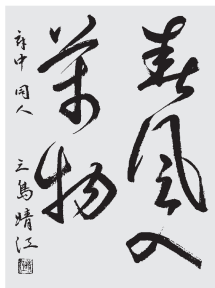 春風入
萬物
府中 同人 三鳥晴江